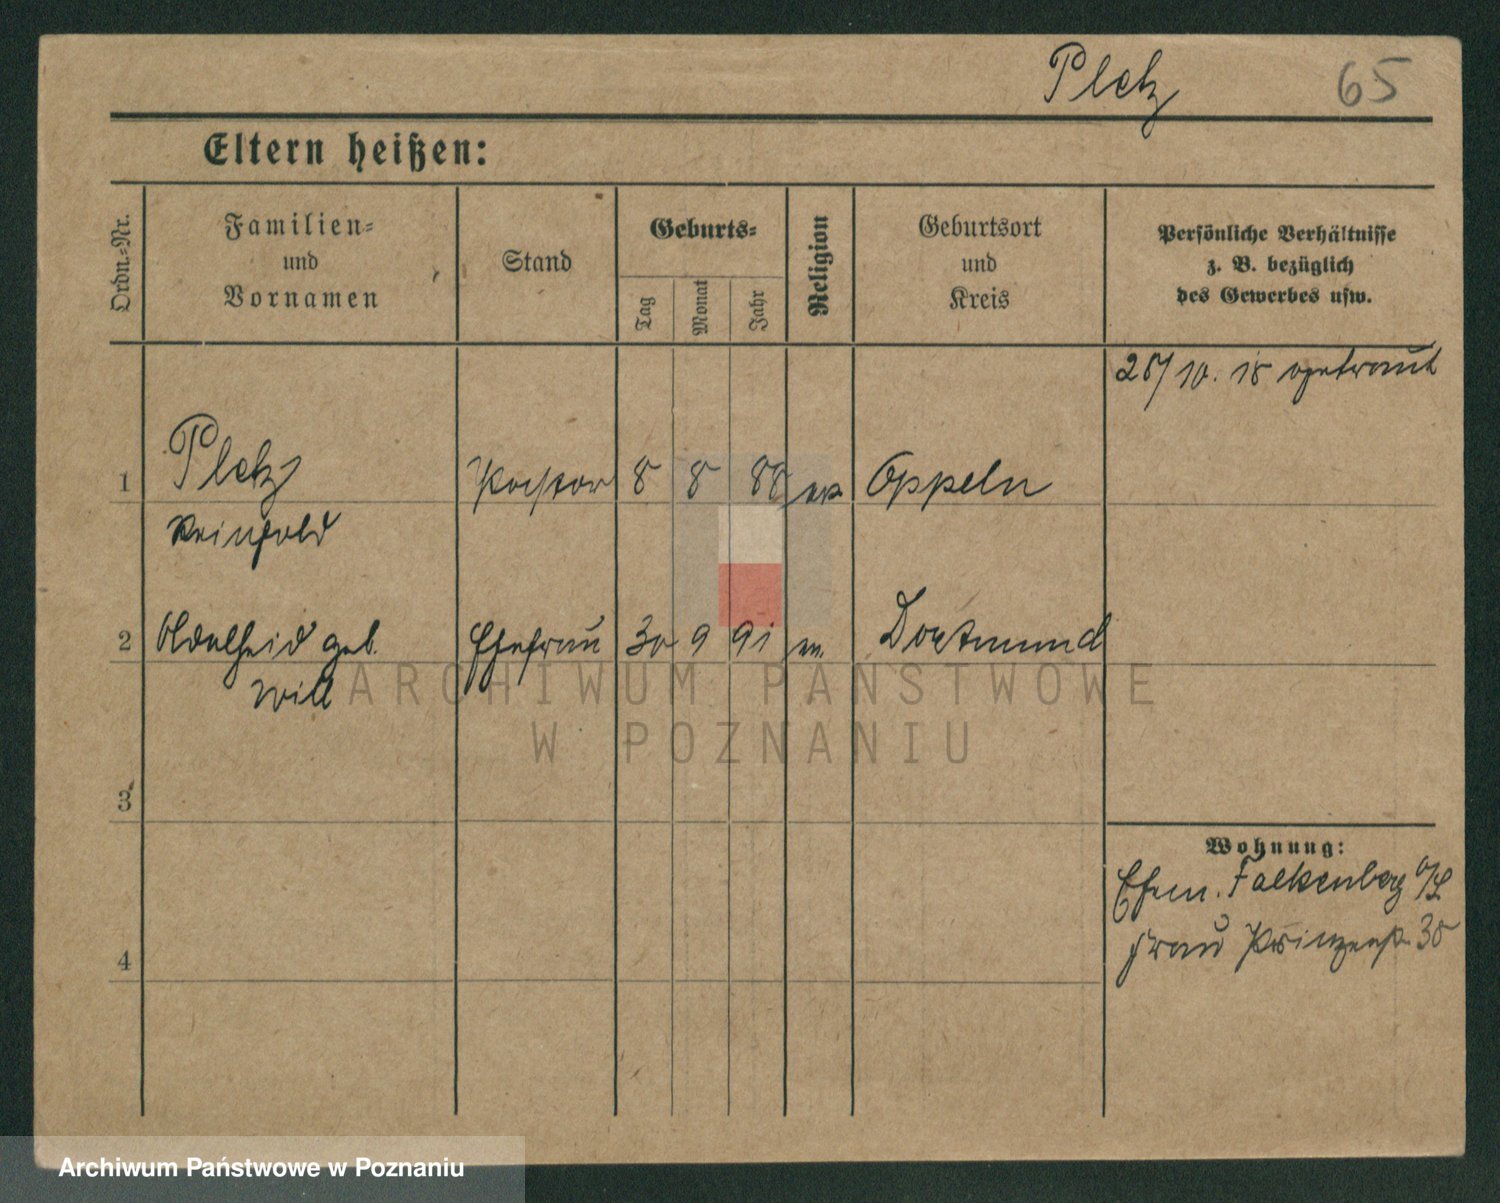 Pletz 65
Eltern heißen:
Ordn.-Nr.
Familien-
und
Vornamen
Stand
Geburts-
Tag
Monat
Jahr
Religion
Geburtsort
und
Kreis
Persönliche Verhältnisse
z. B. bezüglich
des Gewerbes usw.
28/10. 18 getraut
1 Pletz Pastor 8 8 88 ev. Oppeln
Reinhold
2 Adelheid geb. Ehefrau 30 9 91 ev. Dortmund
Will
3
4
Wohnung:
Ehem. Falkenberg O/S
Frau Prinzenstr. 38
ARCHIWUM PAŃSTWOWE
W POZNANIU
Archiwum Państwowe w Poznaniu